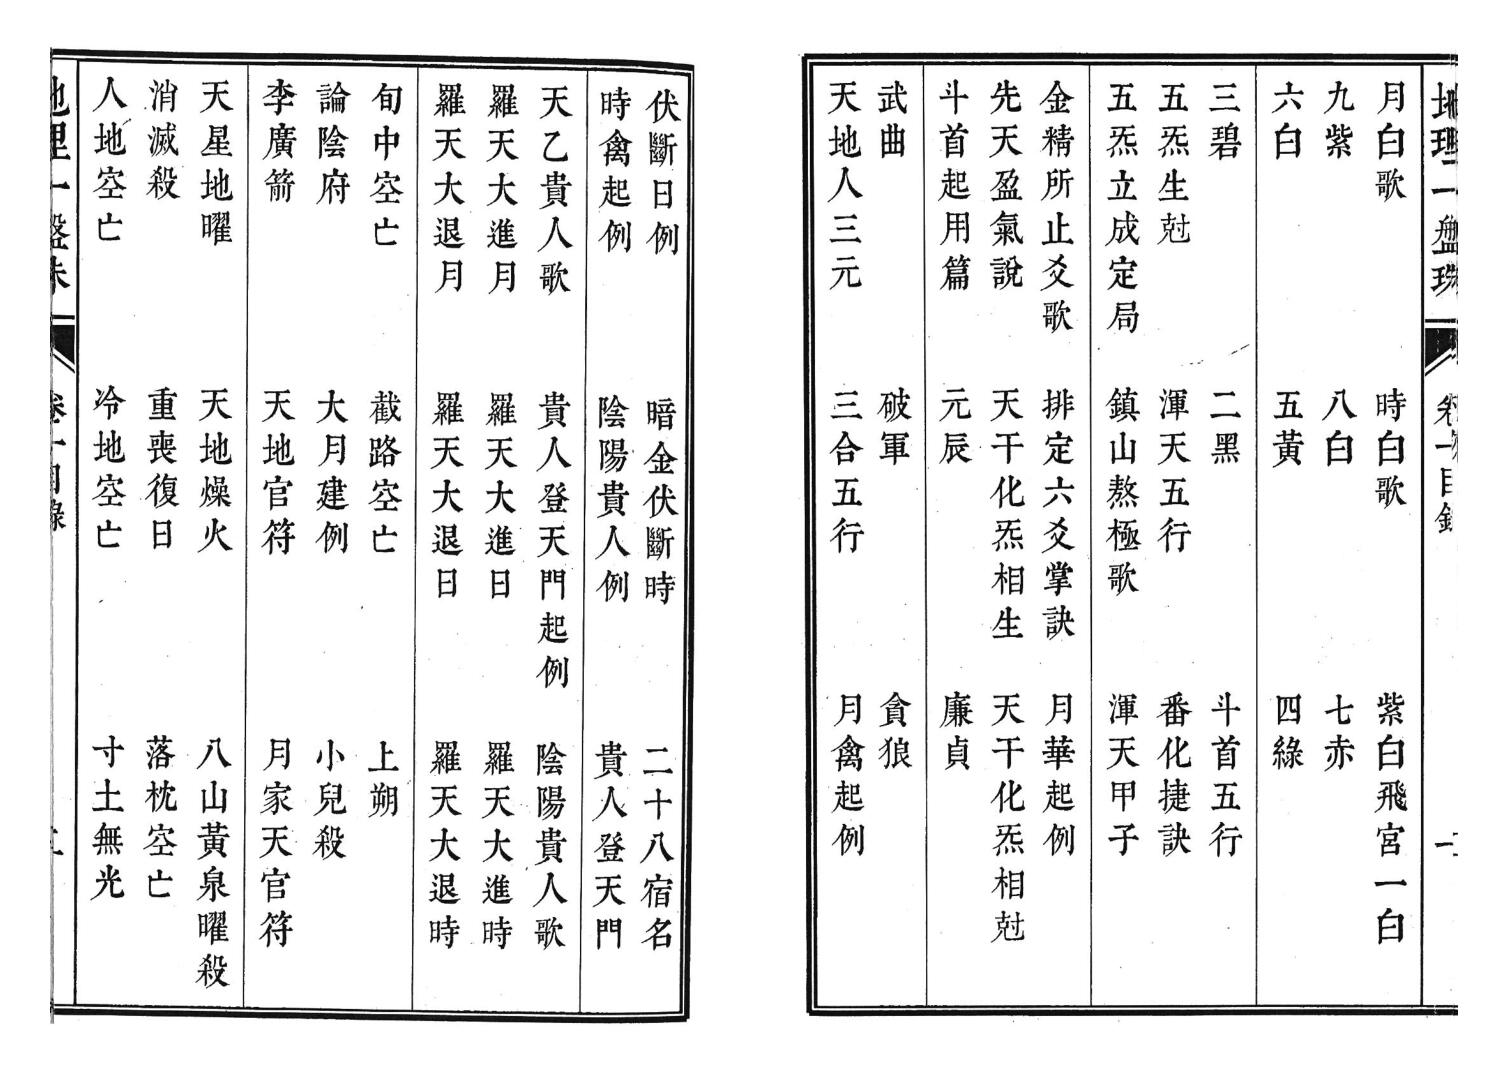 地理一盤珠 卷一目錄
月白歌 時白歌 紫白飛宮一白
九紫 八白 七赤
六白 五黃 四綠
三碧 二黑 斗首五行
五炁生尅 渾天五行 番化捷訣
五炁立成定局 鎮山熬極歌 渾天甲子
金精所止爻歌 排定六爻掌訣 月華起例
先天盈氣說 天干化炁相生 天干化炁相尅
斗首起用篇 元辰 廉貞
武曲 破軍 貪狼
天地人三元 三合五行 月禽起例
伏斷日例 暗金伏斷時 二十八宿名
時禽起例 陰陽貴人例 貴人登天門
天乙貴人歌 貴人登天門起例 陰陽貴人歌
羅天大進月 羅天大進日 羅天大進時
羅天大退月 羅天大退日 羅天大退時
旬中空亡 截路空亡 上朔
論陰府 大月建例 小兒殺
李廣箭 天地官符 月家天官符
天星地曜 天地燥火 八山黃泉曜殺
消滅殺 重喪復日 落枕空亡
人地空亡 冷地空亡 寸土無光
地理一盤珠 卷一目錄